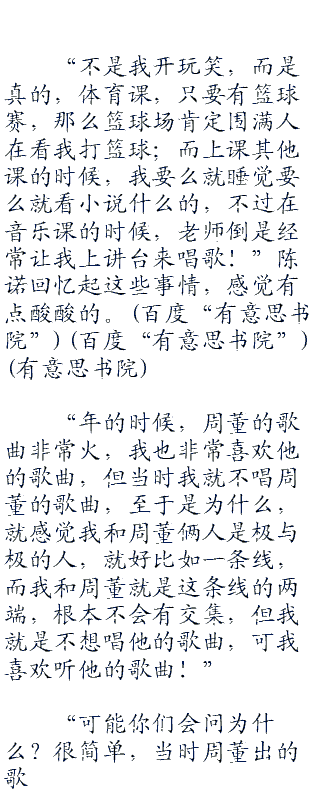 “不是我开玩笑，而是
真的，体育课，只要有篮球
赛，那么篮球场肯定围满人
在看我打篮球；而上课其他
课的时候，我要么就睡觉要
么就看小说什么的，不过在
音乐课的时候，老师倒是经
常让我上讲台来唱歌！”陈
诺回忆起这些事情，感觉有
点酸酸的。(百度“有意思书
院”)(百度“有意思书院”)
(有意思书院)
“年的时候，周董的歌
曲非常火，我也非常喜欢他
的歌曲，但当时我就不唱周
董的歌曲，至于是为什么，
就感觉我和周董俩人是极与
极的人，就好比如一条线，
而我和周董就是这条线的两
端，根本不会有交集，但我
就是不想唱他的歌曲，可我
喜欢听他的歌曲！”
“可能你们会问为什
么？很简单，当时周董出的
歌